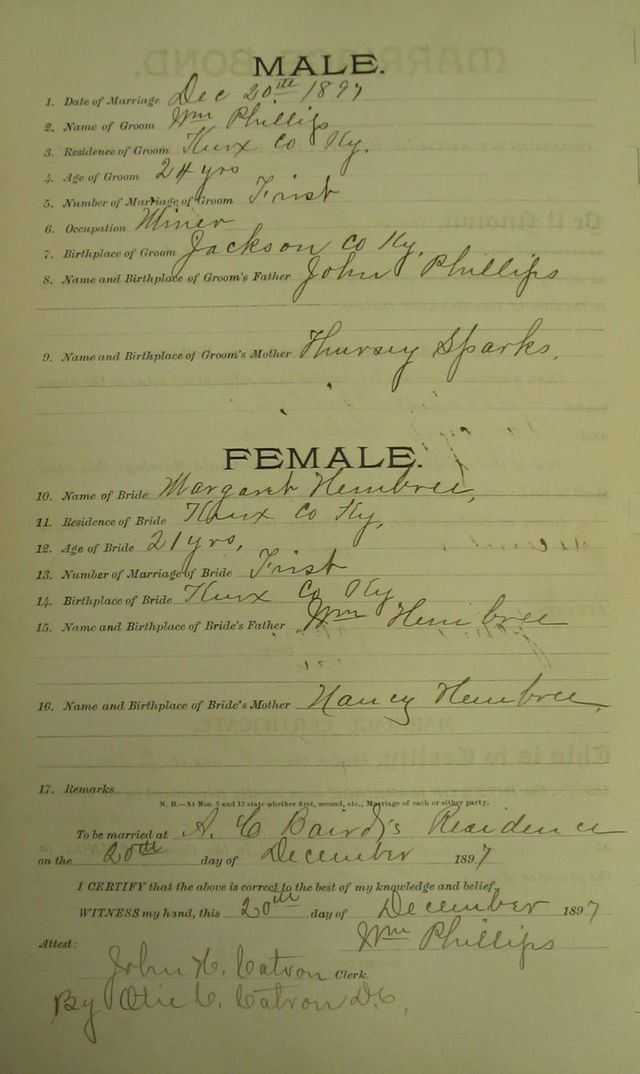 MALE.
1. Date of Marriage Dec 20th 1897
2. Name of Groom Wm Phillips
3. Residence of Groom Knox Co Ky.
4. Age of Groom 24 yrs
5. Number of Marriage of Groom First
6. Occupation Miner
7. Birthplace of Groom Jackson Co Ky.
8. Name and Birthplace of Groom's Father John Phillips
9. Name and Birthplace of Groom's Mother Thursey Sparks.
FEMALE.
10. Name of Bride Margaret Hembree,
11. Residence of Bride Knox Co Ky,
12. Age of Bride 21 yrs,
13. Number of Marriage of Bride First
14. Birthplace of Bride Knox Co Ky
15. Name and Birthplace of Bride's Father Wm Hembree
16. Name and Birthplace of Bride's Mother Nancy Hembree,
17. Remarks
N. B.—At Nos. 5 and 13 state whether first, second, etc., Marriage of each or either party.
To be married at A. C Baird's Residence
on the 20th day of December 1897
I CERTIFY that the above is correct to the best of my knowledge and belief.
WITNESS my hand, this 20th day of December 1897
Wm Phillips
Attest:
John H. Catron Clerk.
By Otie C. Catron D.C.